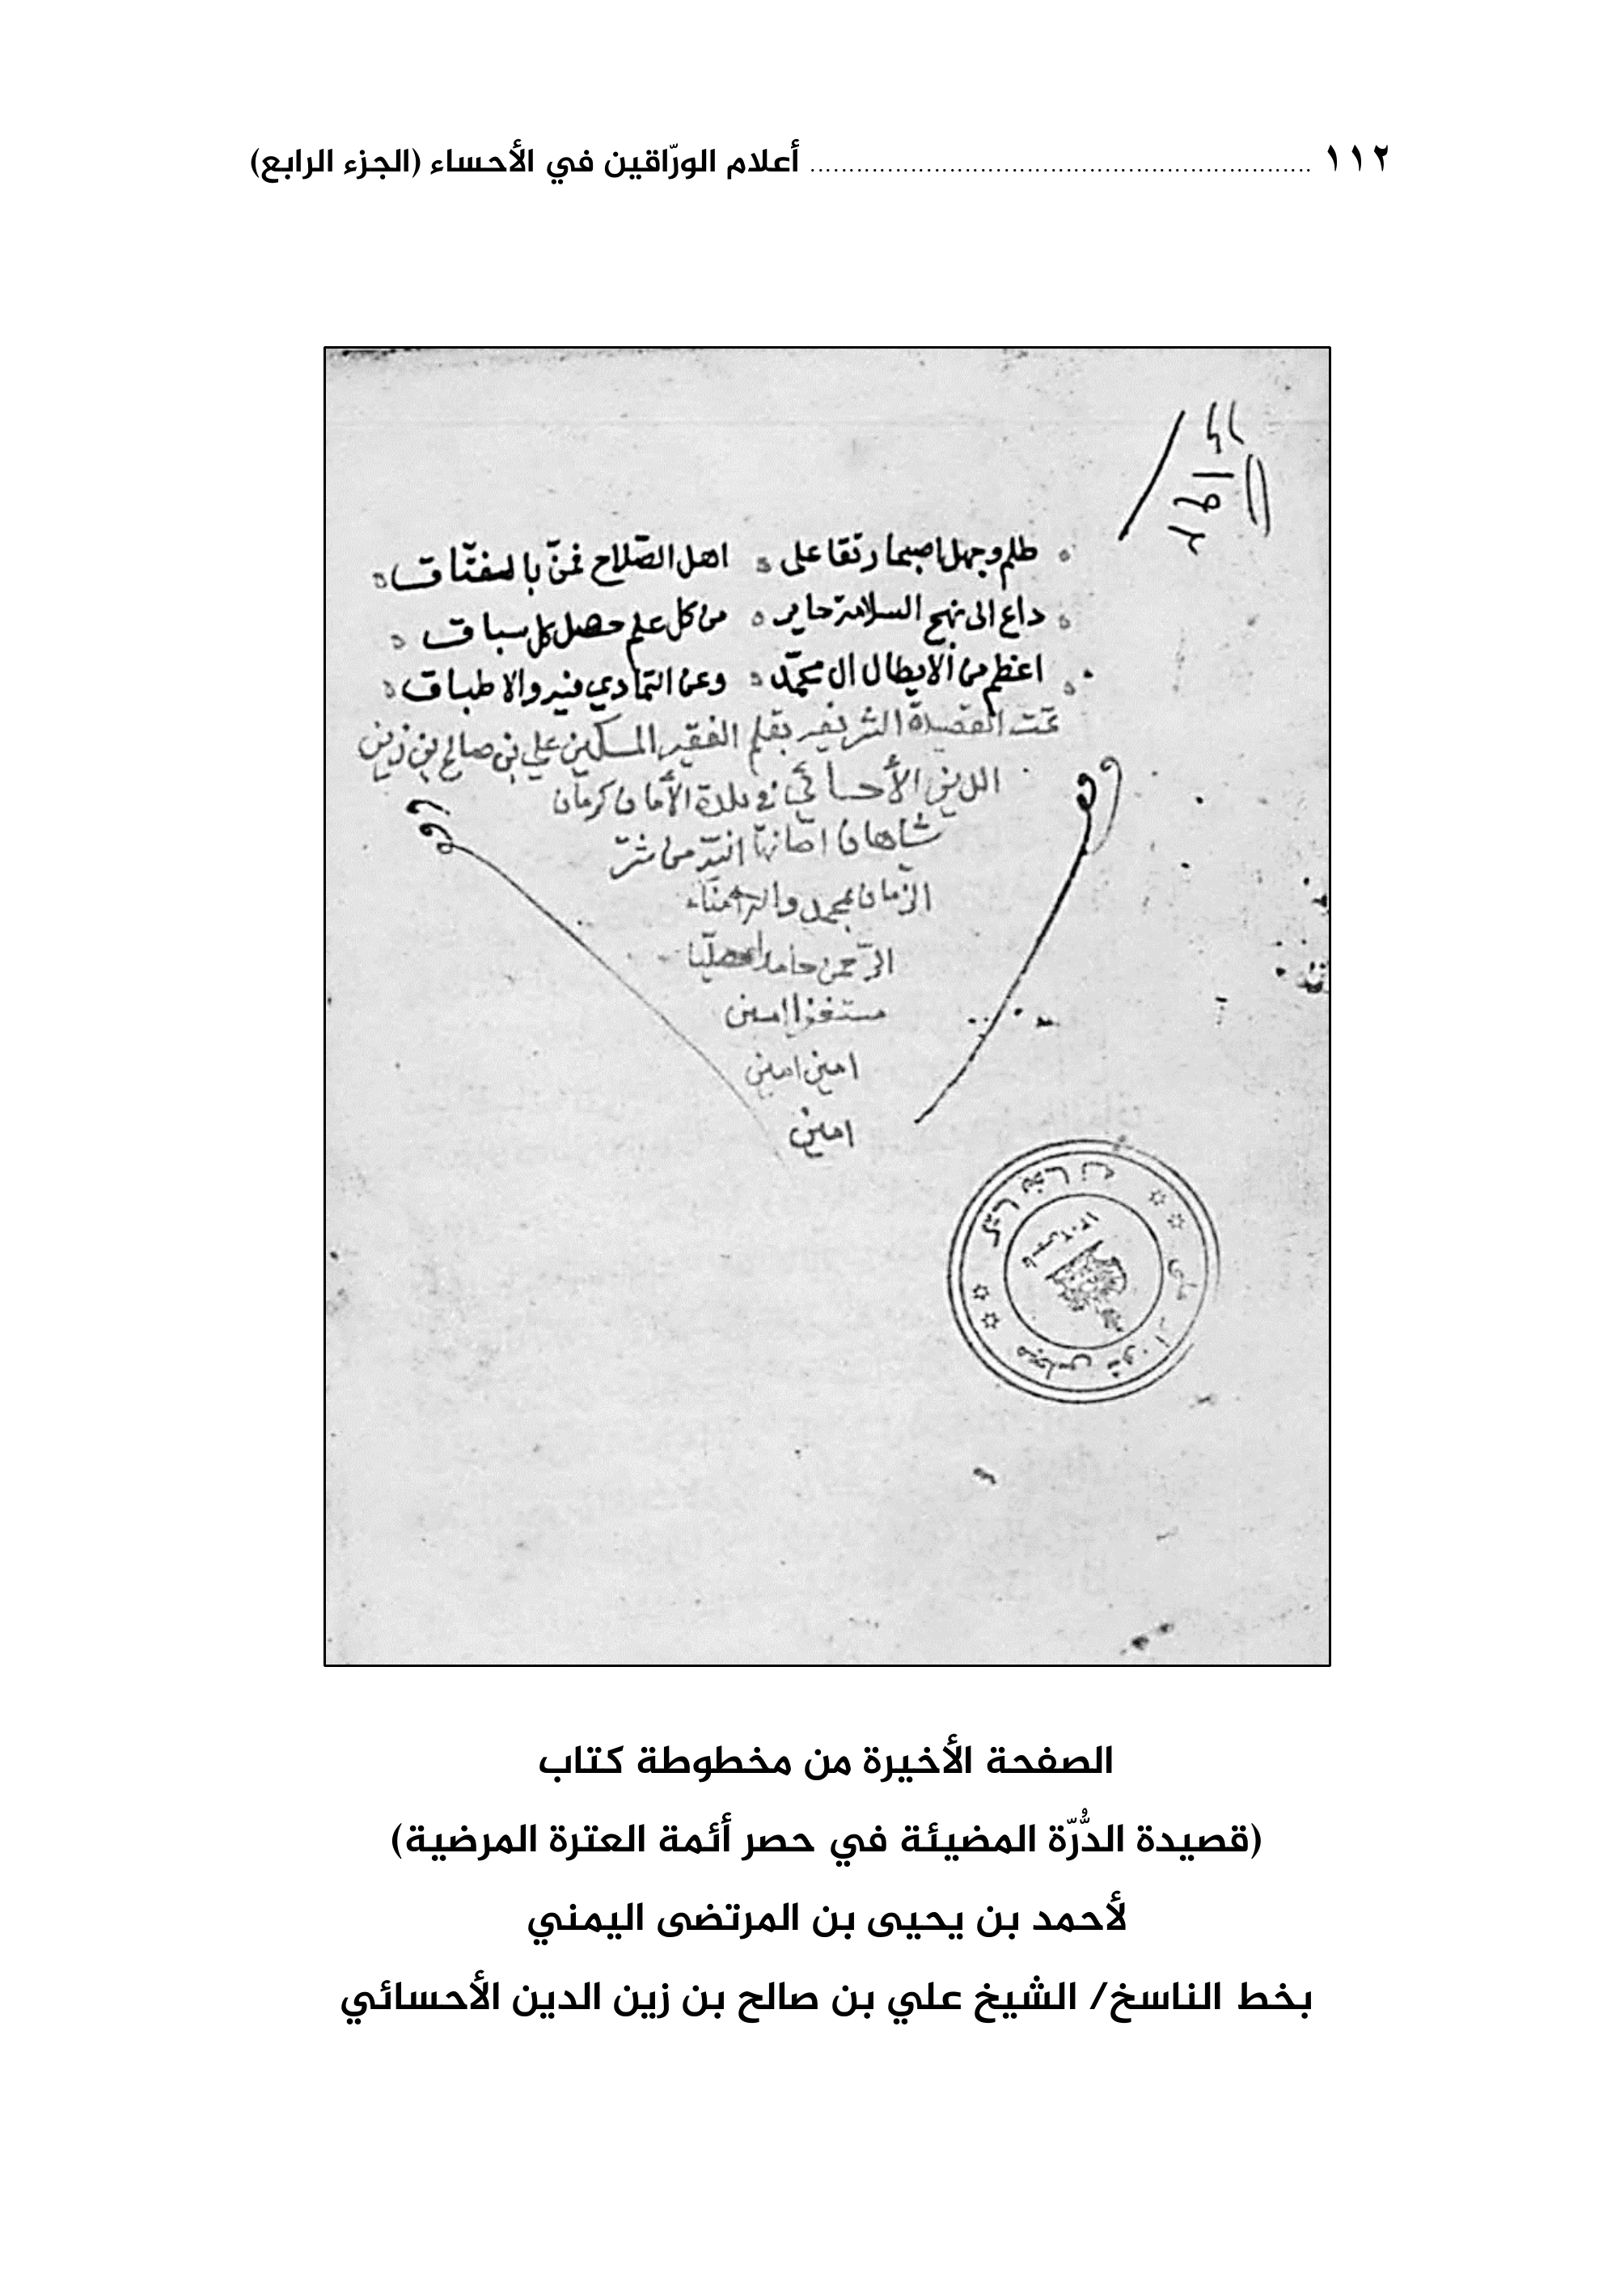 ١١٢ ................................................................ أعلام الورّاقين في الأحساء (الجزء الرابع)
اهل الصّلاح فمنّ بالمفتّاق
داع الى نهج السلامة من كل علم حصل كل سباق
اعظم من الابطال ال محمّد وعن التمادي فيه والاطباق
تمت القصيدة الشريفه بقلم الفقير المسكين علي بن صالح بن زين
الدين الأحسائي في بلدة الأمان كرمان
شاهان من شرّ
الزمان بمحمد واله امناء
الرّحمن حامدا مصلّيا
مستغفرا امين
امين امين
امين
الصفحة الأخيرة من مخطوطة كتاب
(قصيدة الدُّرّة المضيئة في حصر أئمة العترة المرضية)
لأحمد بن يحيى بن المرتضى اليمني
بخط الناسخ/ الشيخ علي بن صالح بن زين الدين الأحسائي